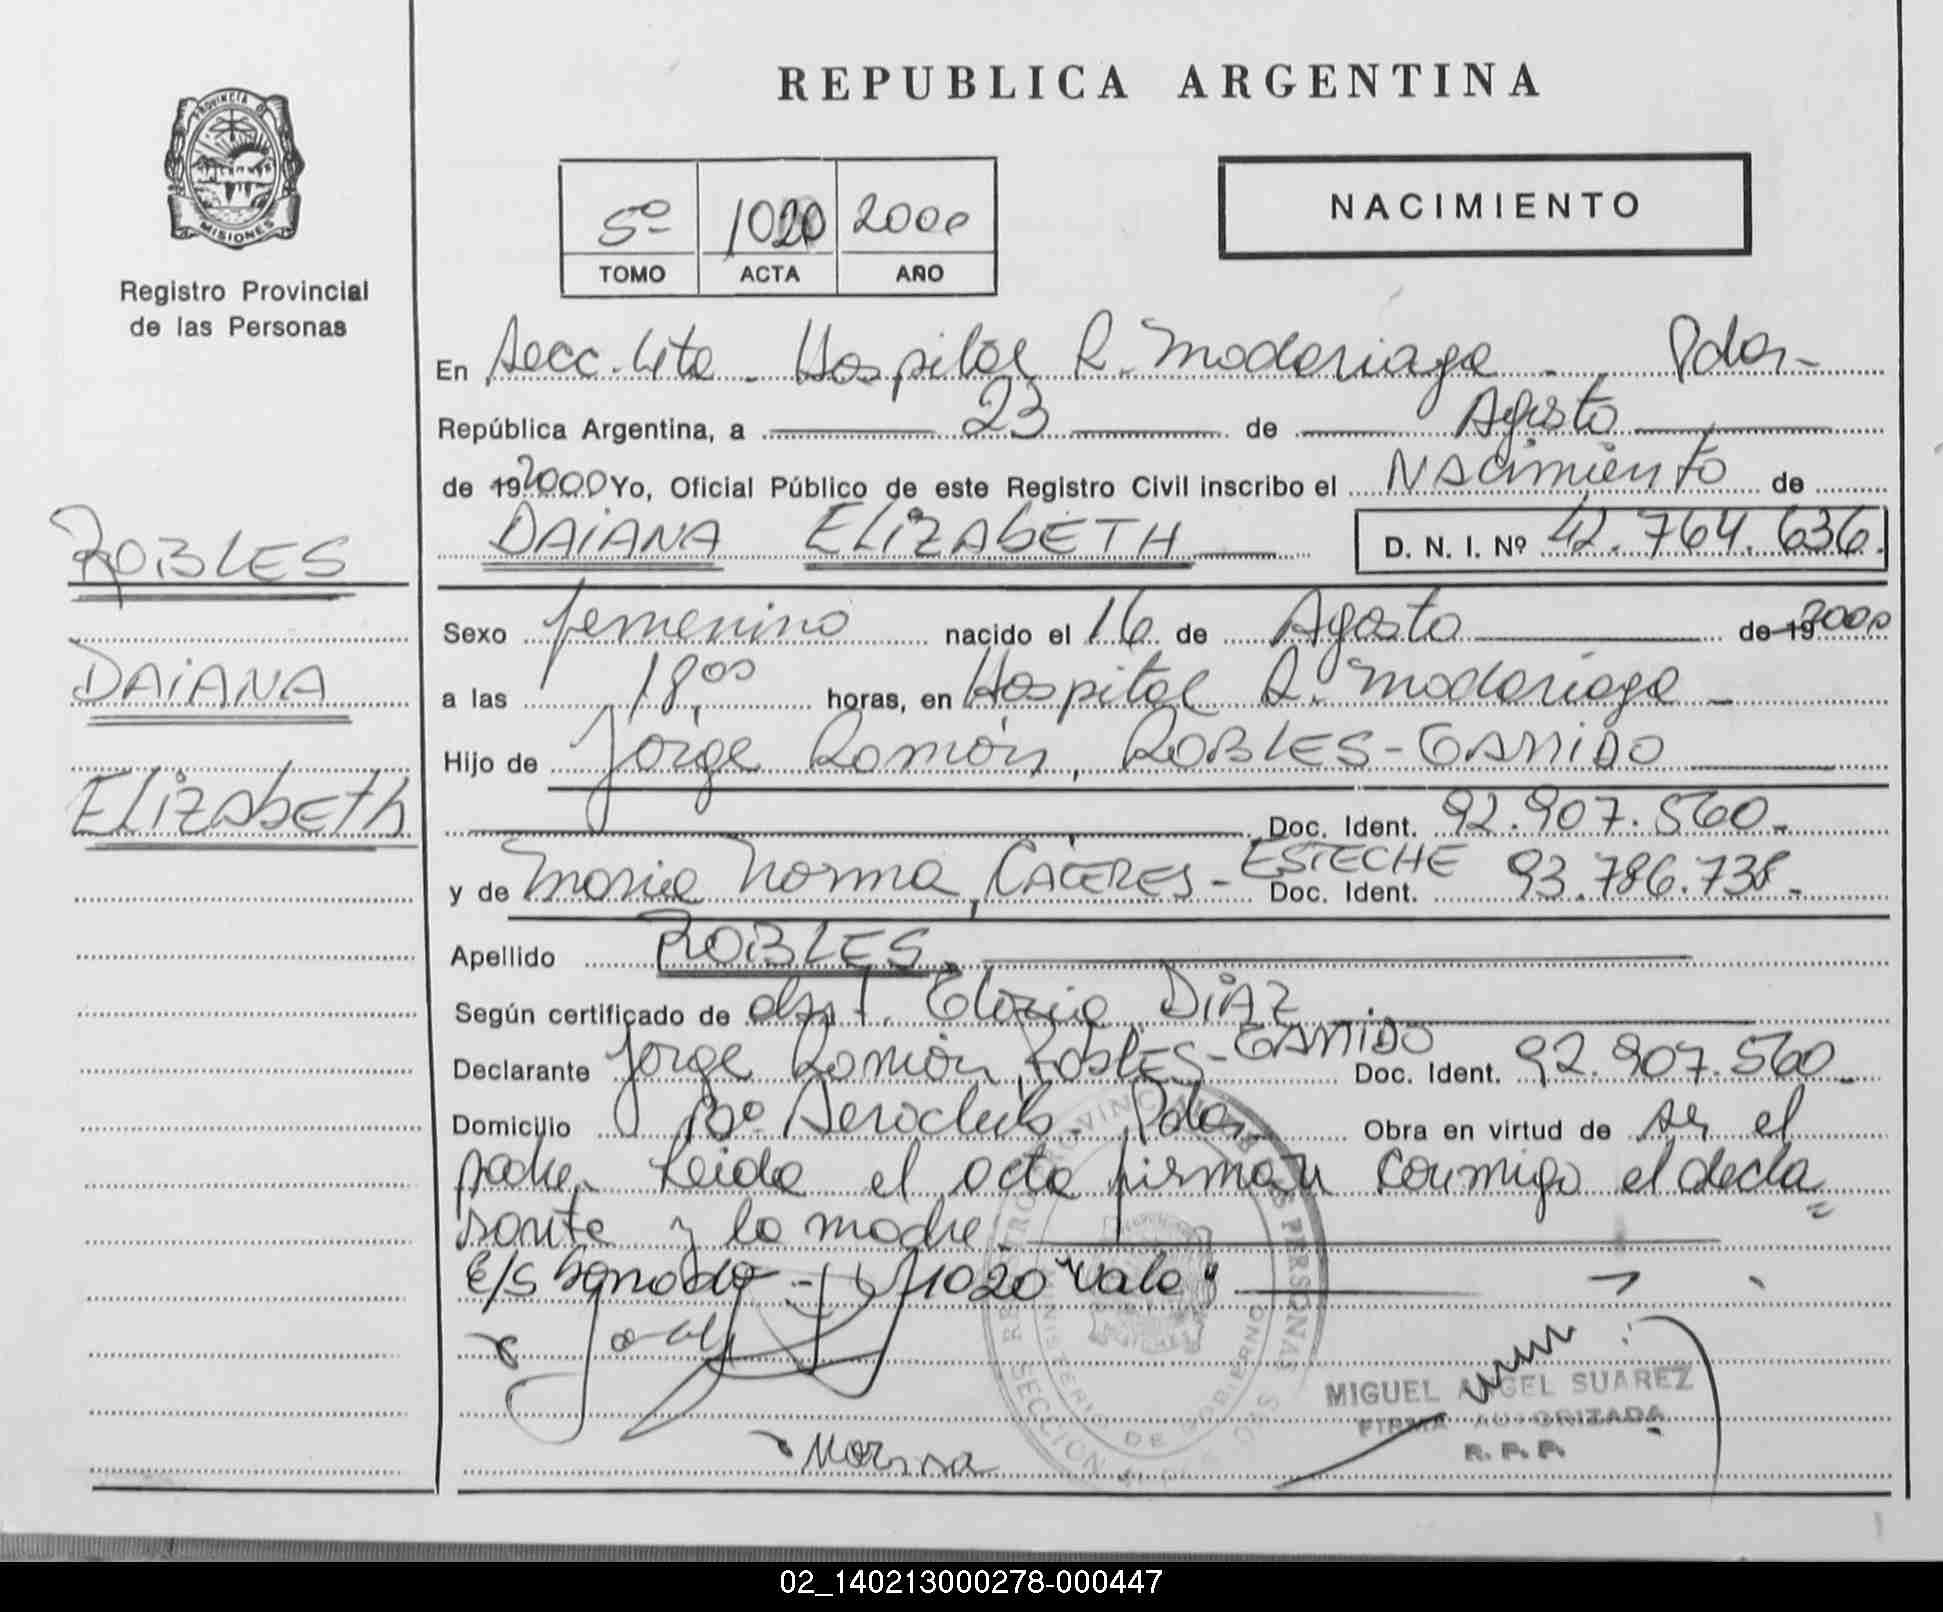 REPUBLICA ARGENTINA
PROVINCIA DE
MISIONES
Registro Provincial
de las Personas
5º 1020 2000
TOMO ACTA AÑO
NACIMIENTO
En Secc. 4ta. Hospital R. Madariaga - Pdas-
República Argentina, a 23 de Agosto
de 19 2000 Yo, Oficial Público de este Registro Civil inscribo el Nacimiento de
DAIANA ELIZAbETH D. N. I. Nº 42.764.636.
ROBLES
DAIANA
ELIZAbETh
Sexo femenino nacido el 16 de Agosto de 19 2000
a las 18,00 horas, en Hospital R. Madariaga -
Hijo de Jorge Ramón, ROBLES-GARRIDO
Doc. Ident. 92.907.560-
y de Maria Norma, CACERES-ESTECHE Doc. Ident. 93.786.738-
Apellido ROBLES.
Según certificado de obst. Gloria DIAZ
Declarante Jorge Ramón, RObLES-GARRIDO Doc. Ident. 92.907.560-
Domicilio Bº Aeroclub- Pdas- Obra en virtud de ser el
padre. Leida el acta firman conmigo el decla=
rante y la madre.-
E/S 1020 "Vale"
REGISTRO PROVINCIAL DE LAS PERSONAS
MINISTERIO DE GOBIERNO
SECCION
MIGUEL ANGEL SUAREZ
FIRMA AUTORIZADA
R. P. P.
02_140213000278-000447